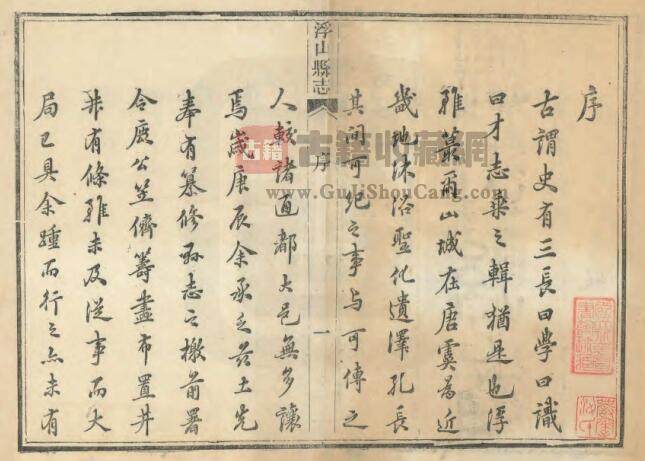 序
古謂史有三長曰學曰識
曰才志乘之輯猶是也浮
雖蕞爾山城在唐虞為近
畿地沐浴聖化遺澤孔長
其間可紀之事與可傳之
浮山縣志
序
一
人較諸通都大邑無多讓
焉歲庚辰余承乏茲土先
奉有纂修縣志之檄前署
令鹿公笠儕籌畫布置井
井有條雖未及從事而大
局已具余踵而行之亦未有
古籍
古籍收藏網
www.GuJiShouCang.com